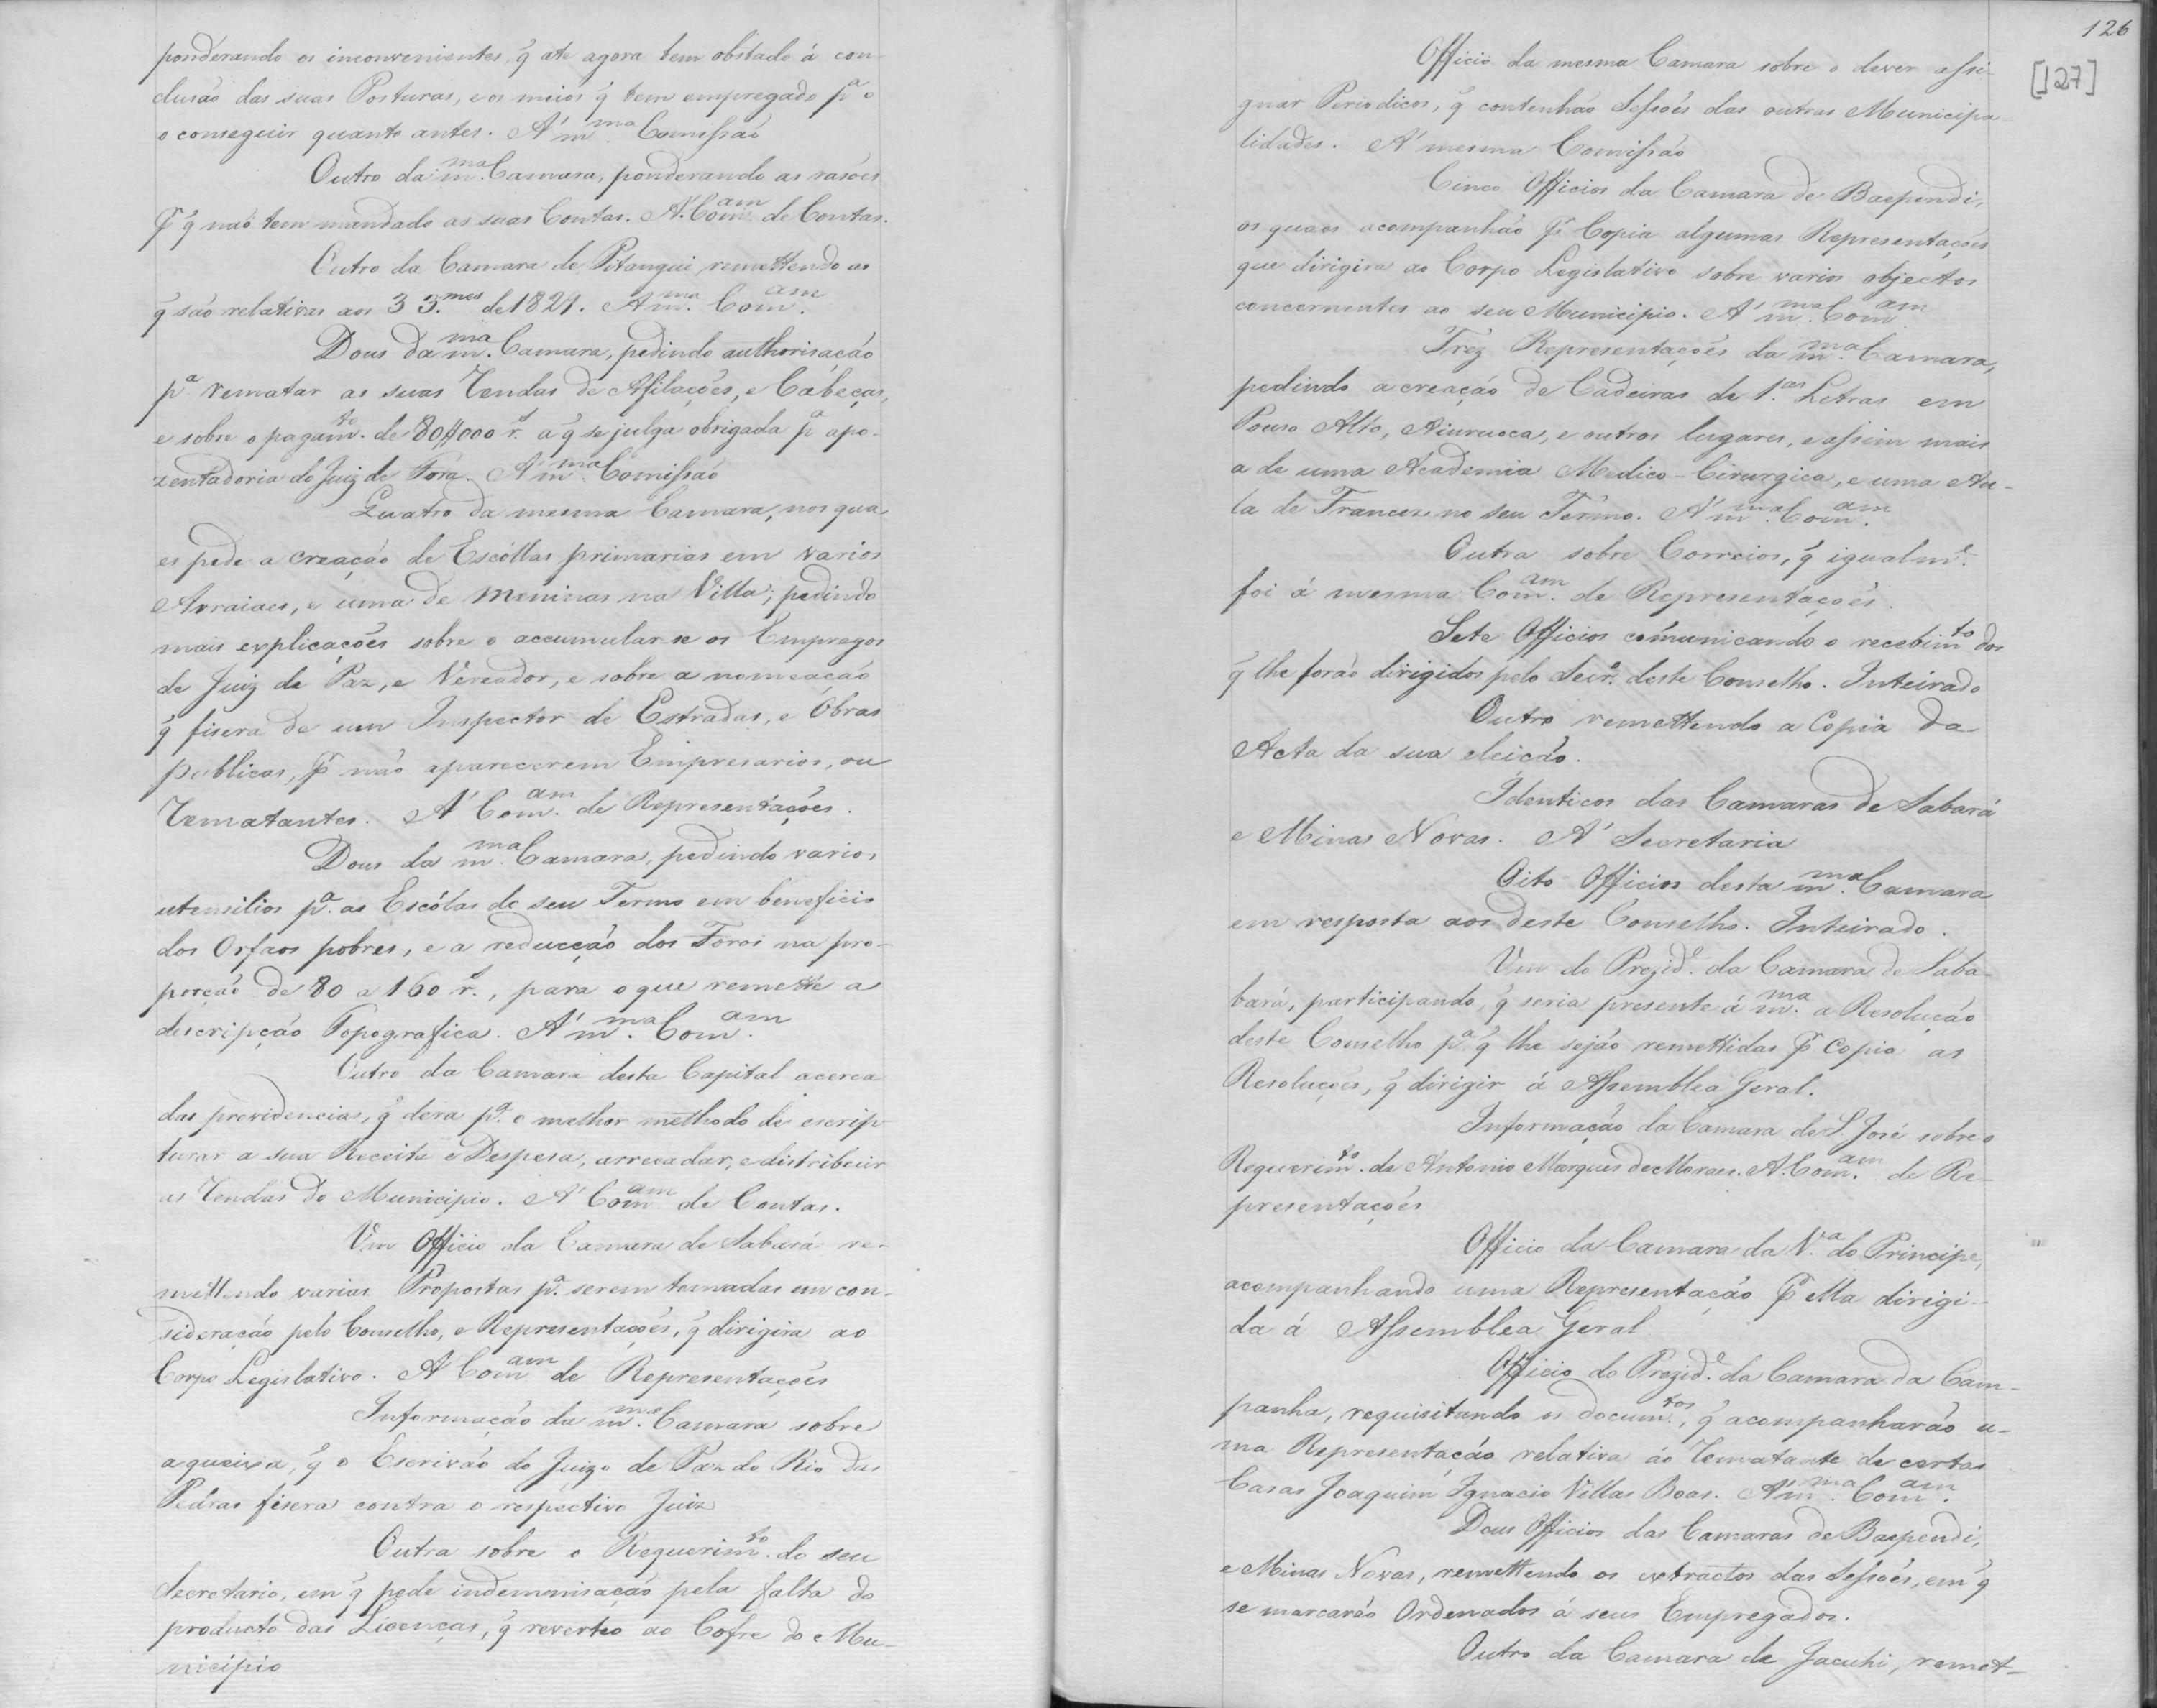 ponderando os inconvenientes, q̃ ate agora tem obstado á con-
clusão das suas Posturas, e os meios q̃ tem empregado pª o
o conseguir quanto antes. Á m.ma Comissão
Outro da m.ma Camara, ponderando as rasões
p̃ q̃ não tem mandado as suas Contas. Á Com.am de Contas.
Outro da Camara de Pitangui remettendo as
q̃ são relativas aos 3 3.mes de 1829. A m.ma Com.am
Dous da m.ma Camara, pedindo authorisação
pª rematar as suas Rendas de Afilações, e Cabeças,
e sobre o pagam.to de 80$000 r.s a q̃ se julga obrigada pª apo-
zentadoria do Juiz de Fóra. Á m.ma Comissão
Quatro da mesma Camara, nos qua
es pede a creação de Escóllas primarias em varios
Arraiaes, e uma de Meninas na Villa; pedindo
mais explicações sobre o accumular-se os Empregos
de Juiz de Paz, e Vereador, e sobre a nomeação
q̃ fisera de um Inspector de Estradas, e Obras
publicas, p̃ não aparecerem Empresarios, ou
Rematantes. Á Com.am de Representações.
Dous da m.ma Camara, pedindo varios
utensilios pª as Escólas de seu Termo em beneficio
dos Orfaos pobres, e a reducção dos Foros na pro-
porção de 80 a 160 r.s, para o que remette a
descripção Topografica. Á m.ma Com.am
Outro da Camara desta Capital acerca
das providencias, q̃ dera pª o melhor methodo de escrip
turar a sua Receita e Despesa, arrecadar, e distribuir
as Rendas do Municipio. Á Com.am de Contas.
Um Officio da Camara de Sabará re-
mettendo varias Propostas pª serem tomadas em con-
sideração pelo Conselho, e Representações, q̃ dirigira ao
Corpo Legislativo. A Com.am de Representações
Informação da m.ma Camara sobre
a queixa, q̃ o Escrivão do Juizo de Paz do Rio das
Pedras fisera contra o respectivo Juiz
Outra sobre o Requerim.to do seu
Secretario, em q̃ pede indemnisação pela falta do
producto das Licenças, q̃ reverteo ao Cofre do Mu-
nicipio
126
[127]
Officio da mesma Camara sobre o dever assi-
gnar Periodicos, q̃ contenhão Sessões das outras Municipa-
lidades. Á mesma Comissão
Cinco Officios da Camara de Baependi,
os quaes acompanhão p̃ Copia algumas Representações
que dirigira ao Corpo Legislativo sobre varios objectos
concernentes ao seu Municipio. Á m.ma Com.am
Trez Representações da m.ma Camara,
pedindo a creação de Cadeiras de 1.as Letras em
Pouso Alto, Aiuruoca, e outros lugares, e assim mais
a de uma Academia Medico-Cirurgica, e uma Au-
la de Francez no seu Termo. Á m.ma Com.am
Outra sobre Correios, q̃ igualm.e
foi á mesma Com.am de Representações.
Sete Officios comunicando o recebim.to dos
q̃ lhe forão dirigidos pelo Secr.o deste Conselho. Inteirado
Outro remettendo a Copia da
Acta da sua eleição.
Identicos das Camaras de Sabará
e Minas Novas. Á Secretaria
Oito Officios desta m.ma Camara
em resposta aos deste Conselho. Inteirado.
Um do Prezid.e da Camara de Saba-
bará, participando, q̃ seria presente á m.ma a Resolução
deste Conselho pª q̃ lhe sejão remettidas p̃ Copia as
Resoluções, q̃ dirigir á Assemblea Geral.
Informação da Camara de S. José sobre o
Requerim.to de Antonio Marques de Moraes. A Com.am de Re-
presentações
Officio da Camara da V.a do Principe,
acompanhando uma Representação p̃ ella dirigi-
da á Assemblea Geral
Officio do Prezid.e da Camara da Cam-
panha, requisitando os docum.tos, q̃ acompanharão u-
ma Representação relativa ao Rematante de certas
Casas Joaquim Ignacio Villas Boas. Á m.ma Com.am
Dous Officios das Camaras de Baependi,
e Minas Novas, remettendo os extractos das Sessões, em q̃
se marcarão Ordenados á seus Empregados.
Outro da Camara de Jacuhi, remet-